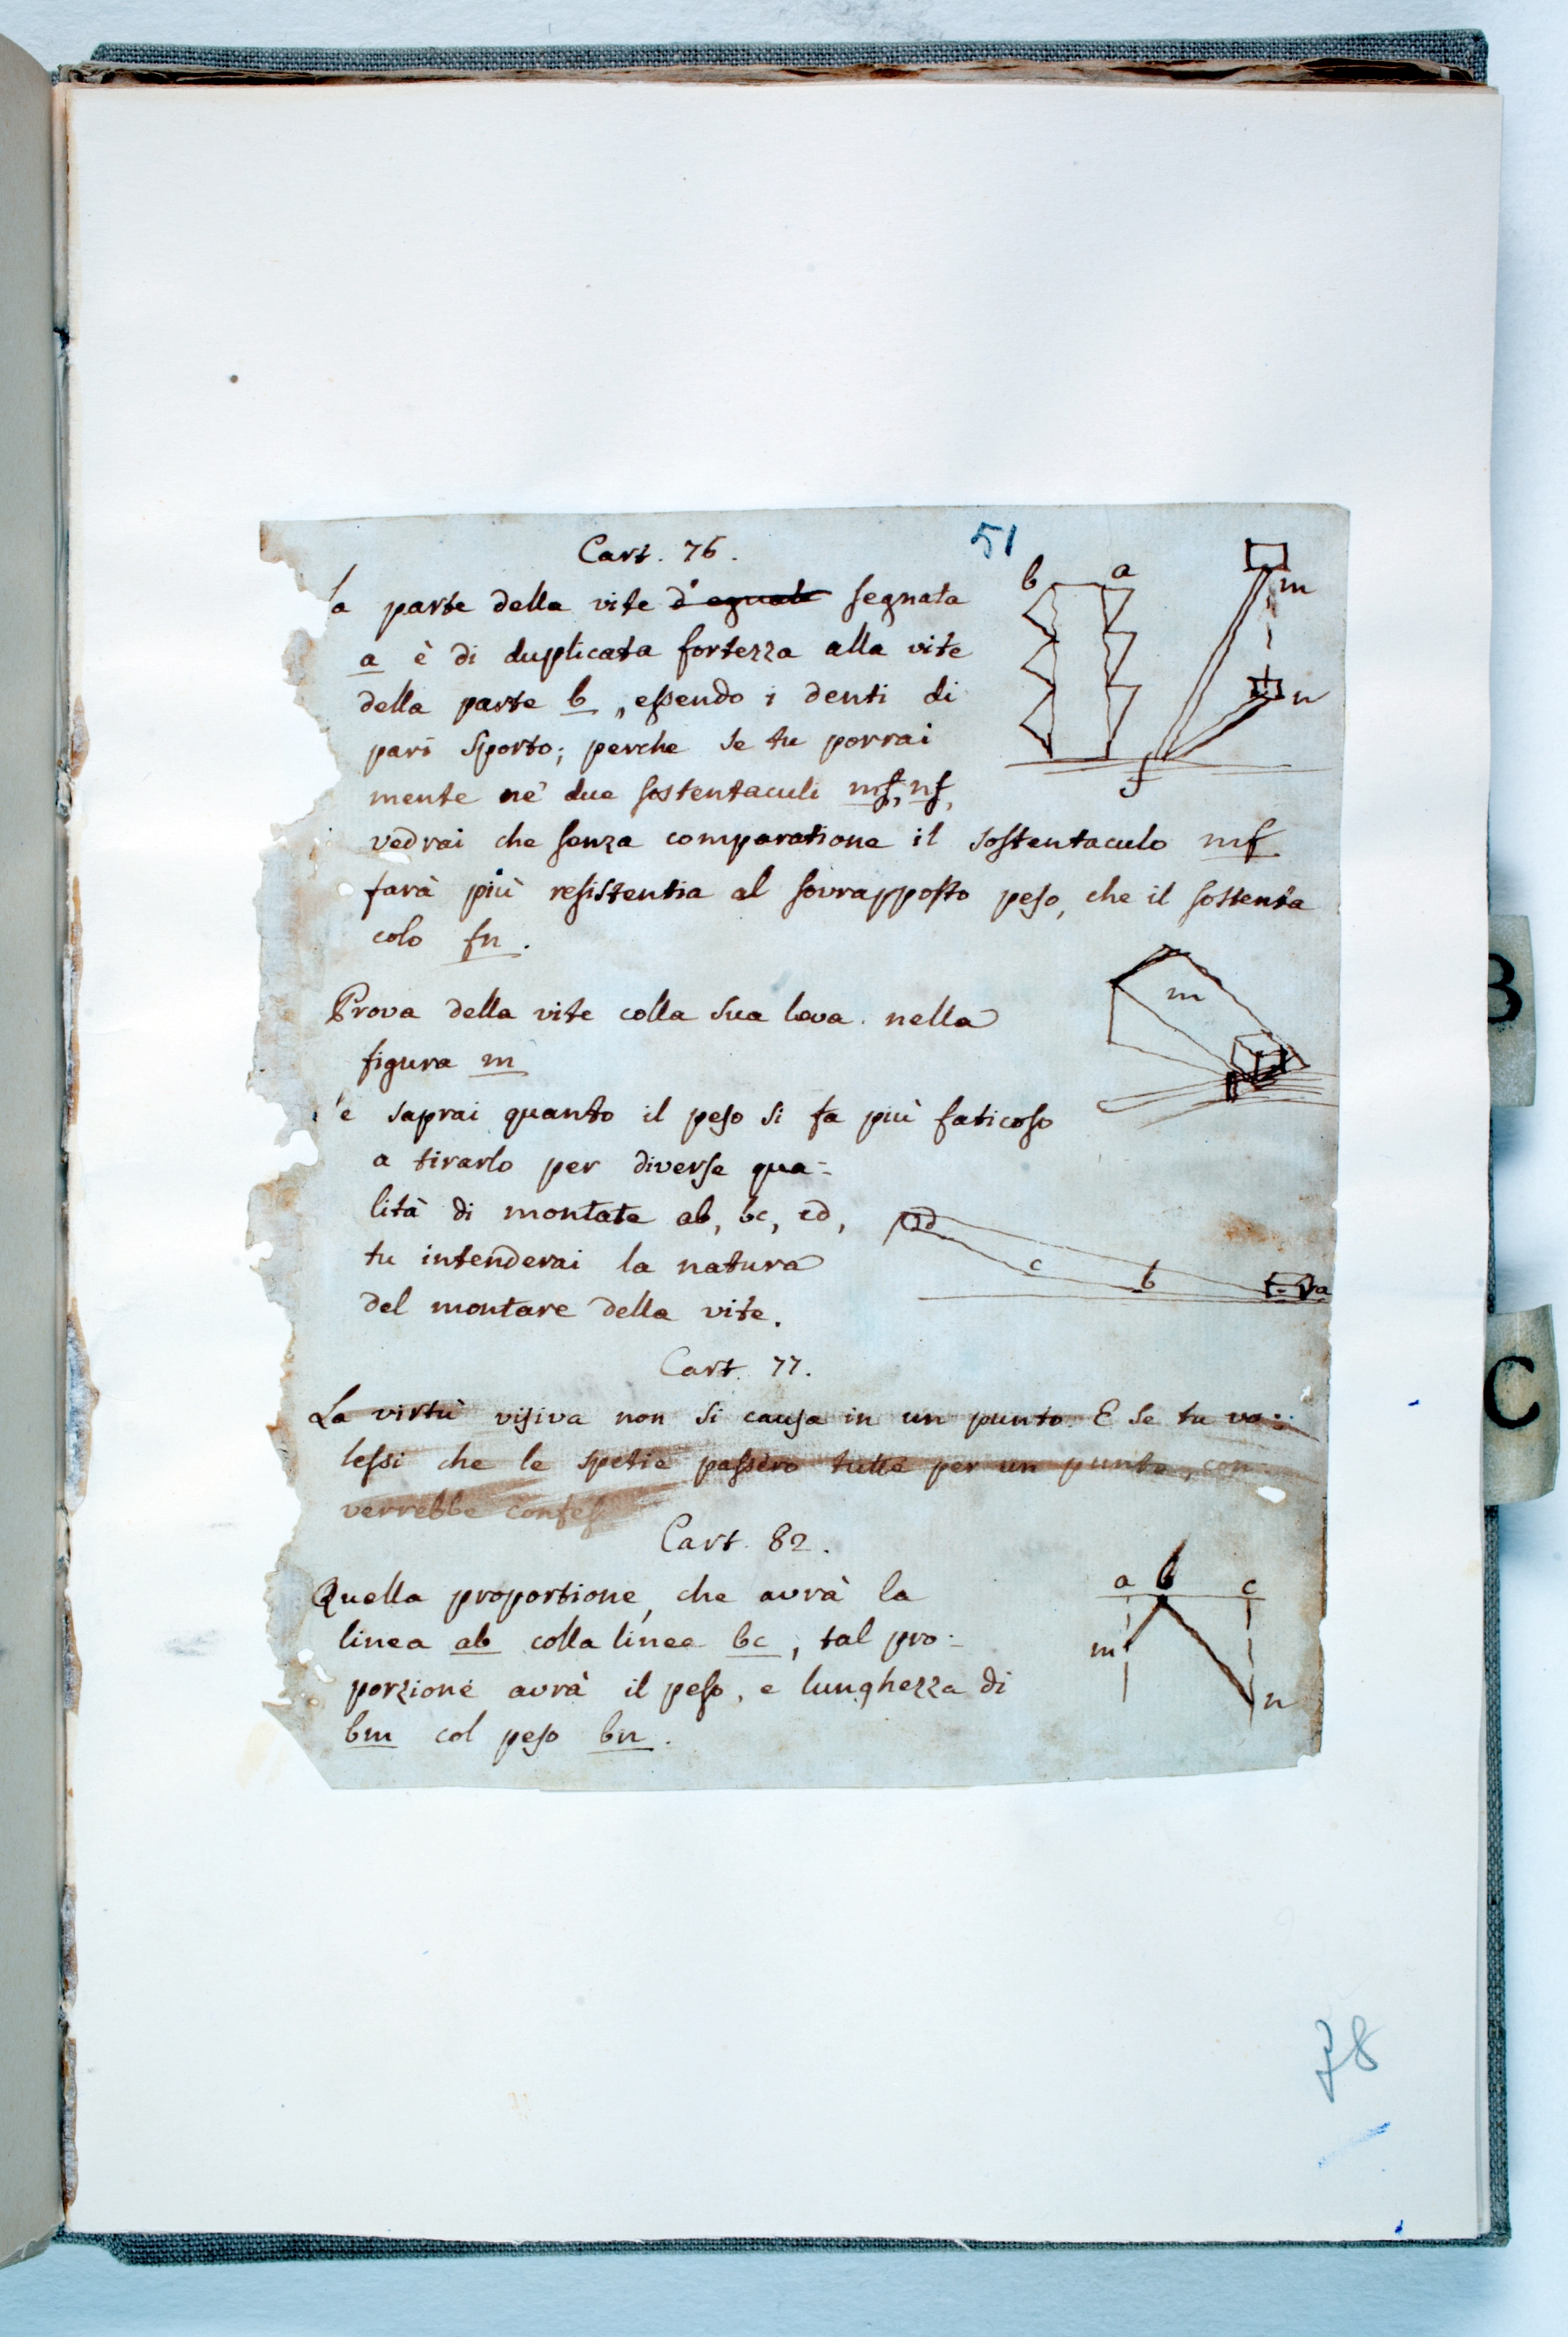 51
Cart. 76.
la parte della vite d'eguale segnata
a è di duplicata fortezza alla vite
della parte b, essendo i denti di
pari sporto; perche se tu porrai
mente ne' due sostentaculi mf, nf,
vedrai che senza comparatione il sostentaculo mf
farà più resistentia al sovrapposto peso, che il sostenta
colo fn.
b a m n f
Prova della vite colla sua leva nella
figura m
m
e saprai quanto il peso si fa più faticoso
a tirarlo per diverse qua-
lità di montate ab, bc, cd,
tu intenderai la natura
del montare della vite.
d c b a
Cart. 77.
La virtù visiva non si causa in un punto. E se tu vo-
lessi che le spetie passèro tutte per un punto, con
verrebbe confes
Cart. 82.
Quella proportione, che avrà la
linea ab colla linea bc, tal pro-
porzione avrà il peso, e lunghezza di
bm col peso bn.
a b c
m
n
78
B
C